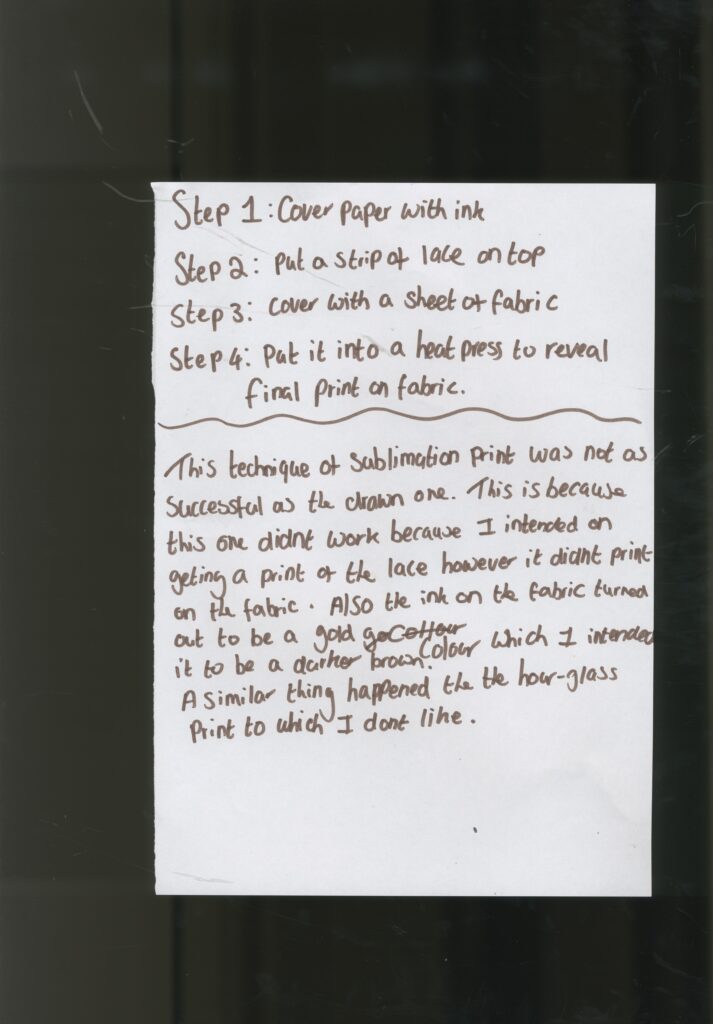 Step 1: Cover paper with ink
Step 2: Put a strip of lace on top
Step 3: Cover with a sheet of fabric
Step 4: Put it into a heat press to reveal
final print on fabric.
This technique of sublimation print was not as
successful as the drawn one. This is because
this one didnt work because I intended on
geting a print of the lace however it didnt print
on the fabric. Also the ink on the fabric turned
out to be a gold colour which I intended
it to be a darker brown.
A similar thing happened the the hour-glass
print to which I dont like.